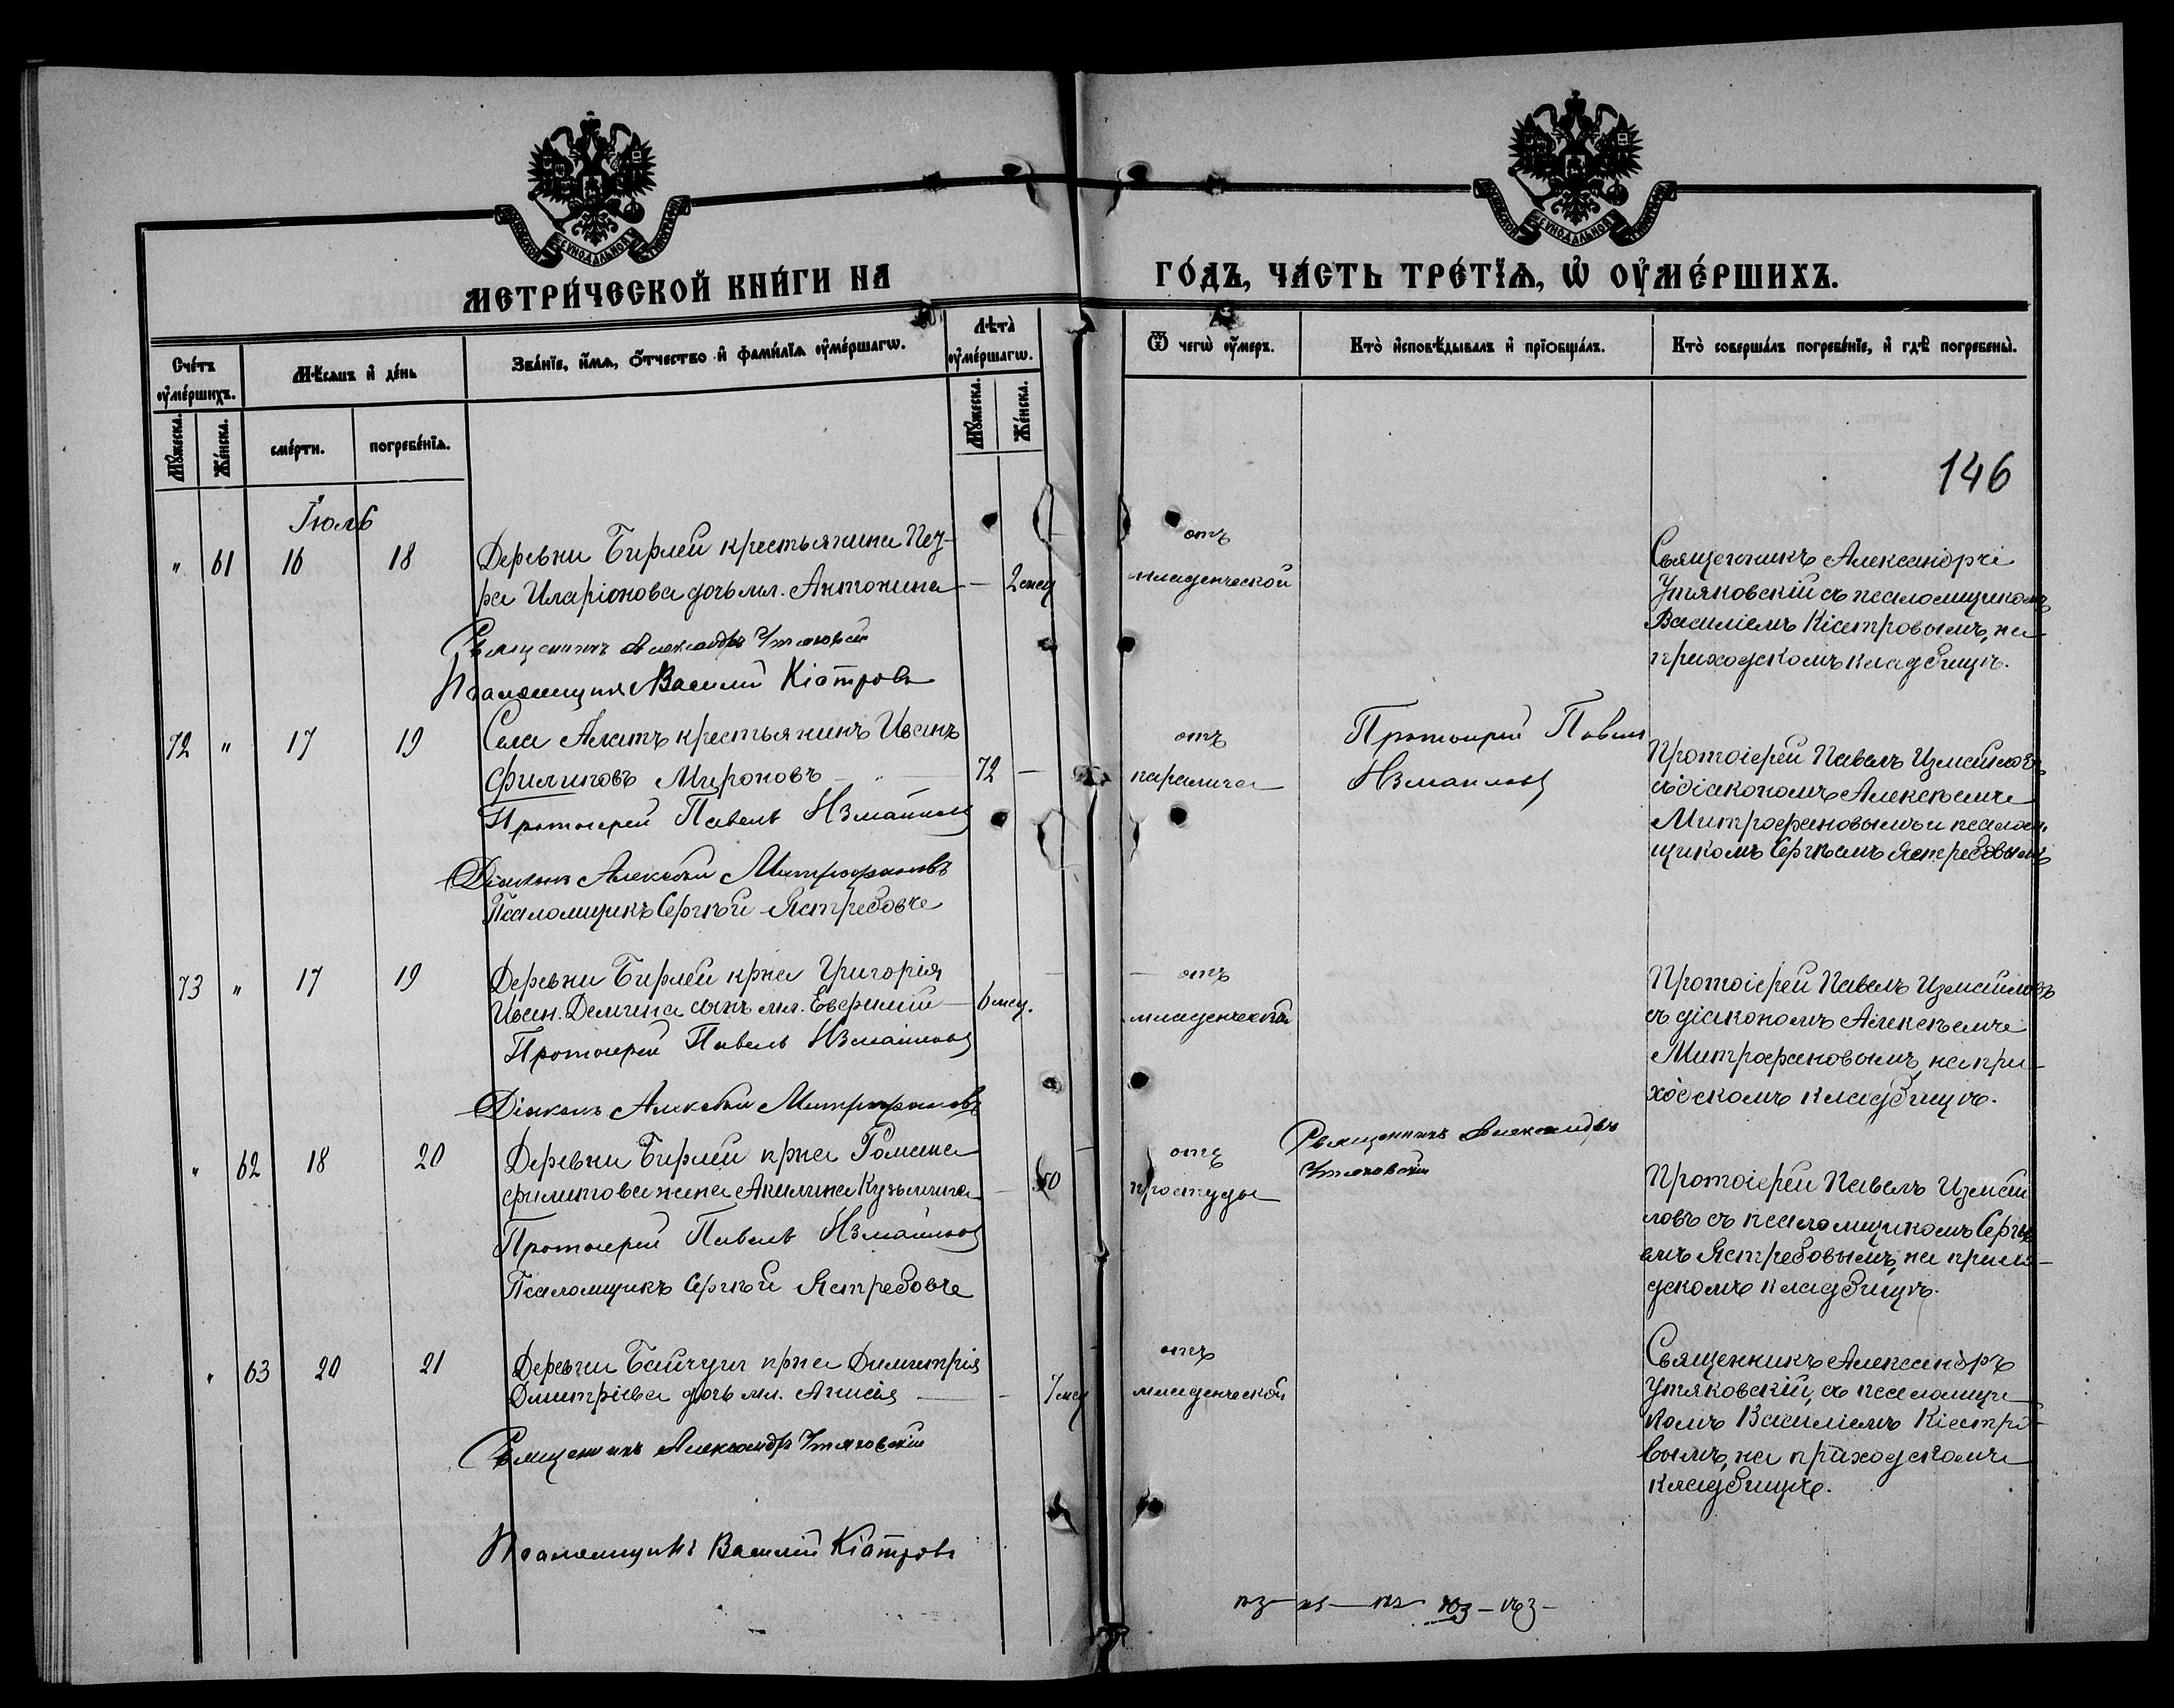 МЕТРИ́ЧЕСКОЙ КНИ́ГИ НА ГО́ДЪ, ЧА́СТЬ ТРЕ́ТЇѦ, Ѡ҆ ОУ҆МЕ́РШИХЪ.
Сче́тъ оу҆ме́ршихъ.
Мѣ́сѧцъ и҆ де́нь
Зва́нїе, и҆́мѧ, ѻ҆́тчество и҆ фами́лїѧ оу҆ме́ршагѡ.
Лѣ́та оу҆ме́ршагѡ.
Ѿ чегѡ̀ оу҆́меръ.
Кто̀ и҆сповѣ́дывалъ и҆ прїѡбща́лъ.
Кто̀ соверша́лъ погребе́нїе, и҆ гдѣ̀ погребены̀.
Мꙋ́жеска.
Же́нска.
сме́рти.
погребе́нїѧ.
Мꙋ́жеска.
Же́нска.
146
Іюль
" 61 16 18
Деревни Бирлей крестьянина Пет-
ра Иларіонова дочь мл. Антонина — 2 мец
Священникъ Александръ Утяковскій
Псаломщикъ Василій Кіатровъ
отъ
младенческой
Священникъ Александръ
Утяковскій съ псаломщикомъ
Василіемъ Кіатровымъ, на
приходскомъ кладбищѣ.
72 " 17 19
Села Алатъ крестьянинъ Иванъ
Филиповъ Мироновъ — 72 —
Протоіерей Павелъ Измайловъ
Діаконъ Алексѣй Митрофановъ
Псаломщикъ Сергѣй Ястребовъ
отъ
паралича
Протоіерей Павелъ
Измайловъ
Протоіерей Павелъ Измайловъ
съ діакономъ Алексѣемъ
Митрофановымъ и псалом-
щикомъ Сергѣемъ Ястребовымъ
73 " 17 19
Деревни Бирлей крна Григорія
Иван. Демина сынъ мл. Евфимій — 6 мец.
Протоіерей Павелъ Измайловъ
Діаконъ Алексѣй Митрофановъ
отъ
младенческой
Протоіерей Павелъ Измайловъ
съ діакономъ Алексѣемъ
Митрофановымъ, на при-
ходскомъ кладбищѣ.
" 62 18 20
Деревни Бирлей крна Романа
Филипова жена Акилина Кузьмина — 50
Протоіерей Павелъ Измайловъ
Псаломщикъ Сергѣй Ястребовъ
отъ
простуды
Священникъ Александръ
Утяковскій
Протоіерей Павелъ Измай
ловъ съ псаломщикомъ Сергѣ
емъ Ястребовымъ, на прихо-
дскомъ кладбищѣ.
" 63 20 21
Деревни Байчуги крна Димитрія
Димитріева дочь мл. Анисія — - 7 мец
Священникъ Александръ Утяковскій
Псаломщикъ Василій Кіатровъ
отъ
младенческой
Священникъ Александръ
Утяковскій, съ псаломщи
комъ Василіемъ Кіатро-
вымъ, на приходскомъ
кладбищѣ.